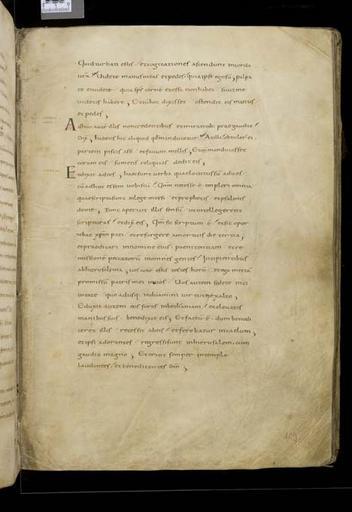 Quid turbati estis et cogitationes ascendunt in corda
ura Videte manus meas et pedes quia ipse ego sum palpa
te et uidete quia sps carnem et ossa non habet sicut me
uidetis habere Et cum hoc dixisset ostendit eis manus
et pedes
Adhuc autem illis non credentibus et mirantibus prae gaudio
dixit habetis hic aliquid quod manducetur At illi obtuler ei
partem piscis assi et fauum mellis Et cum manducasset
coram eis sumens reliquias dedit eis
Et dixit ad eos haec sunt uerba quae locutus sum ad uos
cum adhuc essem uobiscum Qm necesse e impleri omnia
quae scripta sunt in lege mosi et prophetis et psalmis
de me Tunc aperuit illis sensum ut intellegerent
scripturas et dixit eis Qm sic scriptum e et sic opor
tebat xpm pati et resurgere a mortuis die tertia
et praedicari in nomine eius paenitentiam et re
missionem peccatorum in omnes gentes Incipientibus
ab hierosolyma uos autem estis testes horum et ego mitto
promissum patris mei in uos Uos autem sedete in ci
uitate quo adusq; induamini uirtutem ex alto
Eduxit autem eos foras in bethaniam et eleuatis
manibus suis benedixit eis Et factum e dum benedi
ceret illis recessit ab eis et ferebatur in caelum
et ipsi adorantes regressi sunt in hierusalem cum
gaudio magno Et erant semper in templo
laudantes et benedicentes dm